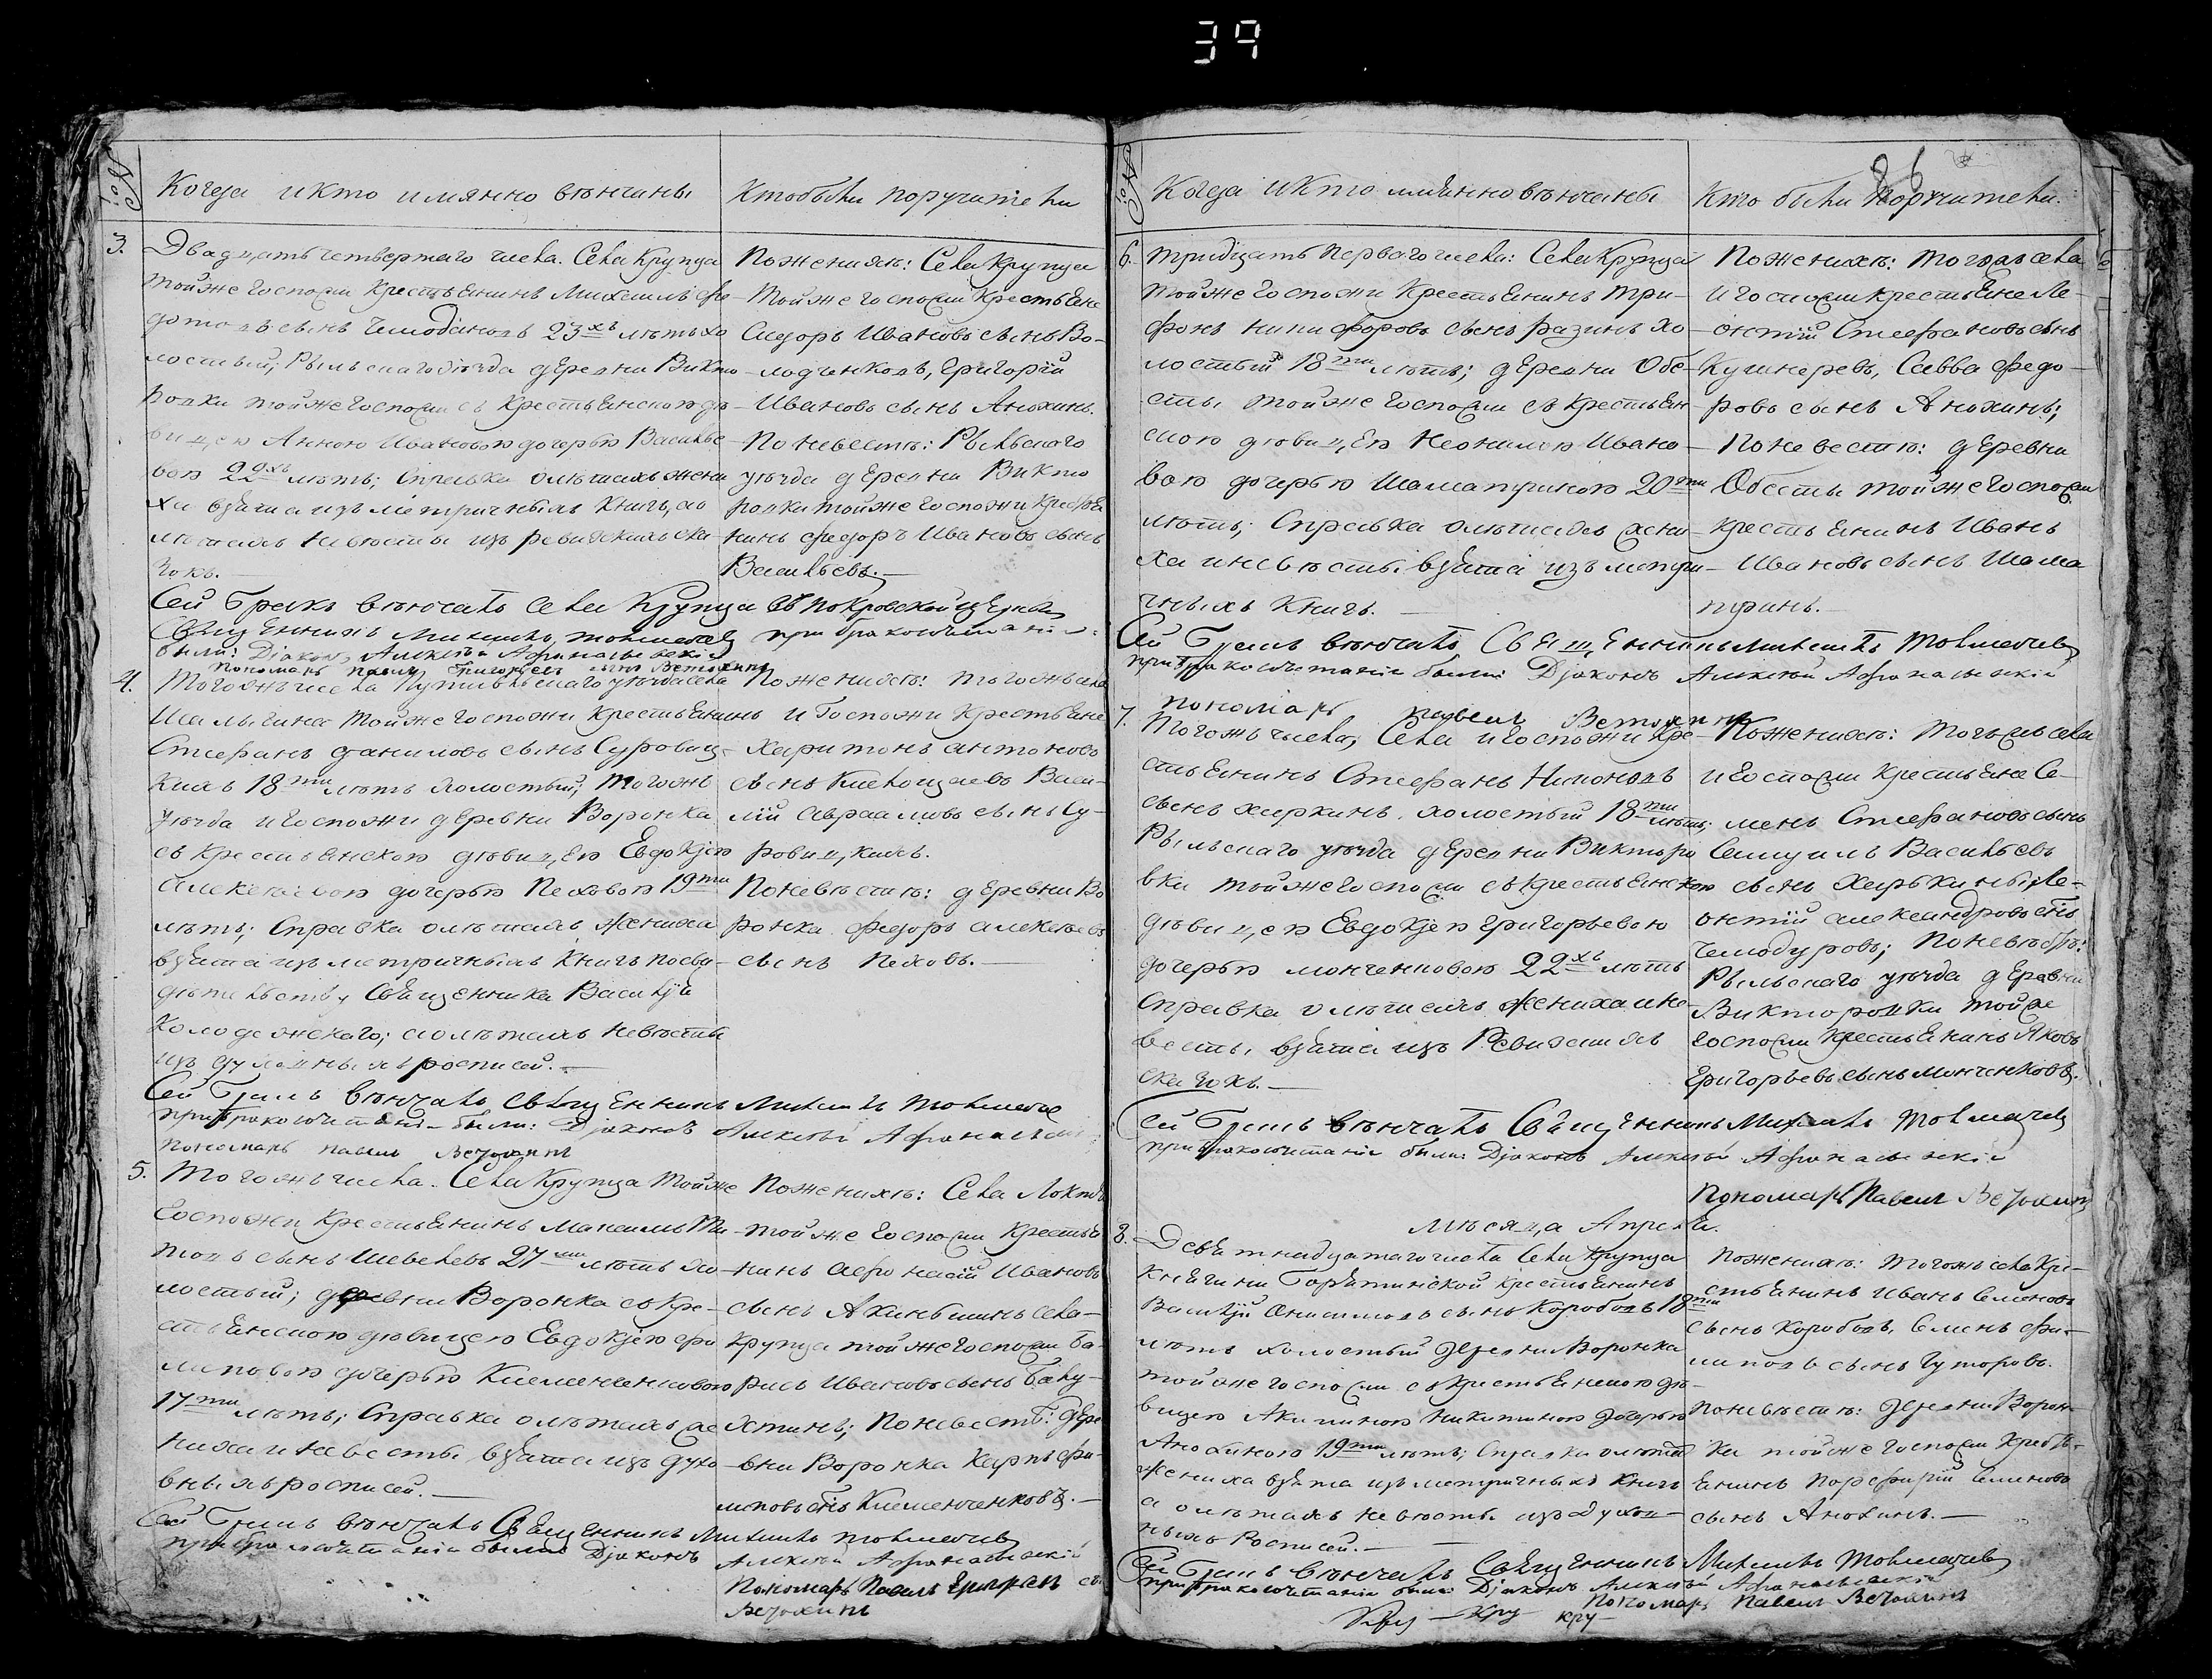 39
№:
Когда и кто имянно вѣнчаны
Кто были поручители
3.
Двадцать четвертаго числа. Села Крупца
тойже Госпожи крестьянинъ Михаилъ Фе-
дотовъ сынъ Чемодановъ 23хъ лѣтъ хо
лостый; Рыльскаго уѣзда деревни Викто
ровки тойже Госпожи съ крестьянскою дѣ
вицею Анною Ивановою дочерью Василье
вою 22хъ лѣтъ; Справка о лѣтахъ жени
ха взята изъ метричныхъ книгъ, а о
лѣтахъ невѣсты изъ ревижскихъ ска
зокъ.
По женихѣ: Села Крупца
тойже Госпожи крестьяне
Сидоръ Ивановъ сынъ Во-
лодченковъ, Григорій
Ивановъ сынъ Анохинъ.
По невестѣ: Рыльского
уѣзда деревни Викто
ровки тойже Госпожи крестья
нинъ Федоръ Ивановъ сынъ
Васильевъ.
Сей бракъ вѣнчалъ села Крупца въ Покровской церкви
Священникъ Михаилъ Толмачевъ при бракосочитаніи
были: Діаконъ Алексѣй Афанасьевскій
Пономарь Павелъ Григорьевъ сынъ Ветохинъ
4.
Тогожъ числа Путивльскаго уѣзда села
Шалыгина тойже Госпожи крестьянинъ
Стефанъ Даниловъ сынъ Суровиц-
кихъ 18ти лѣтъ холостый; тогожъ
уѣзда и Госпожи деревни Воронка
съ крестьянскою дѣвицею Евдокіею
Алексѣевою дочерью Пеховою 19ти
лѣтъ; Справка о лѣтахъ жениха
взята изъ метричныхъ книгъ по сви-
дѣтельству Священника Василія
Колодежскаго; а о лѣтахъ невѣсты
изъ духовныхъ росписей.
По женихѣ: тогожъ села
и Госпожи крестьяне
Харитонъ Антоновъ
сынъ Васи-
лій Авраамовъ сынъ Су-
ровицкихъ.
По невѣстѣ: деревни Во
ронка Федоръ Алексѣевъ
сынъ Пеховъ.
Сей бракъ вѣнчалъ Священникъ Михаилъ Толмачевъ
при бракосочитаніи были: Діаконъ Алексѣй Афанасьевскій
Пономарь Павелъ Ветохинъ
5.
Тогожъ числа. Села Крупца тойже
Госпожи крестьянинъ Максимъ Ти-
товъ сынъ Шевелевъ 27ми лѣтъ хо
лостый; деревни Воронка съ кре-
стьянскою дѣвицею Евдокіею Фи
липовою дочерью Клеменчнковою
17ти лѣтъ; Справка о лѣтахъ же
ниха и невесты взята изъ духо
вныхъ росписей.
По женихѣ: Села Локтя
тойже Госпожи крестья
нинъ Афонасій Ивановъ
сынъ Акиньшинъ села
Крупца тойже Госпожи Бо-
рисъ Ивановъ сынъ Баку-
хтинъ; По невестѣ: дере
вни Воронка Карпъ Фи-
липовъ снъ Клеменченковъ.
Сей бракъ вѣнчалъ Священникъ Михаилъ Толмачевъ
при бракосочитаніи были Діаконъ Алексѣй Афанасьевскій
Пономарь Павелъ Григорьевъ
Ветохинъ
№:
Когда и кто имянно вѣнчаны
Кто были поручители.
6.
Тридцать перваго числа: Села Крупца
тойже Госпожи крестьянинъ Три-
фонъ Никифоровъ сынъ Разинъ хо
лостый 18ти лѣтъ; деревни Обе-
сты тойже Госпожи съ крестьян
скою дѣвицею Неонилою Ивано
вою дочерью Шаматриною 20ти
лѣтъ; Справка о лѣтахъ жени
ха и невѣсты взята изъ метри
чныхъ книгъ.
По женихѣ: тогожъ села
и Госпожи крестьяне Ле-
онтій Стефановъ сынъ
Кушнеревъ, Савва Федо
ровъ сынъ Анохинъ;
По невестѣ: деревни
Обесты тойже Госпожи
крестьянинъ Иванъ
Ивановъ сынъ Шама
тринъ.
Сей бракъ вѣнчалъ Священникъ Михаилъ Толмачевъ
при бракосочитаніи были: Діаконъ Алексѣй Афанасьевскій
Пономарь Павелъ Ветохинъ
7.
Тогожъ числа, Села и Госпожи кре-
стьянинъ Стефанъ
сынъ Харкинъ холостый 18ти лѣтъ;
Рыльскаго уѣзда деревни Викторо
вки тойже Госпожи съ крестьянскою
дѣвицею Евдокіею Григорьевою
дочерью Монченковою 22хъ лѣтъ
Справка о лѣтахъ жениха и не
весты взята изъ Ревижскихъ
сказокъ.
По женихѣ: тогожъ села
и Госпожи крестьяне Се-
менъ Стефановъ сынъ
Самуилъ Васильевъ
сынъ Ле-
онтій Александровъ снъ
Чемодуровъ; По невѣстѣ:
Рыльскаго уѣзда деревни
Викторовки тойже
Госпожи крестьянинъ Яковъ
Григорьевъ сынъ Монченковъ.
Сей бракъ вѣнчалъ Священникъ Михаилъ Толмачевъ
при бракосочитаніи были: Діаконъ Алексѣй Афанасьевскій
Пономарь Павелъ Ветохинъ
Мѣсяца Апреля.
8.
Девятнадцатаго числа Села Крупца
Княгини Борятинской крестьянинъ
Василій Онисимовъ сынъ Коробовъ 18ти
лѣтъ холостый деревни Воронка
тойже Госпожи съ крестьянскою дѣ-
вицею Акилиною Никитиною дочерью
Анохиною 19ти лѣтъ; Справка о лѣтахъ
жениха взята изъ метричныхъ книгъ
а о лѣтахъ невѣсты изъ духов-
ныхъ Росписей.
По женихѣ: тогожъ села кре-
стьянинъ Иванъ Семеновъ
сынъ Коробовъ, Семенъ Фи-
липовъ сынъ Гуторовъ.
По невѣстѣ: деревни Ворон-
ка тойже Госпожи кресть-
янинъ Порфирій Семеновъ
сынъ Анохинъ.
Сей бракъ вѣнчалъ Священникъ Михаилъ Толмачевъ
при бракосочитаніи были Діаконъ Алексѣй Афанасьевскій
Пономарь Павелъ Ветохинъ